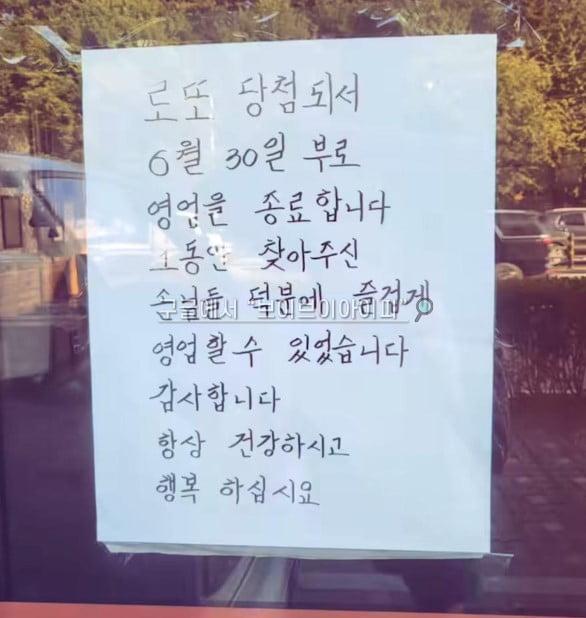 로또 당첨되서
6월 30일 부로
영업을 종료합니다
그동안 찾아주신
손님들 덕분에 즐겁게
구글에서
영업할수 있었습니다
감사합니다
항상 건강하시고
행복 하십시요